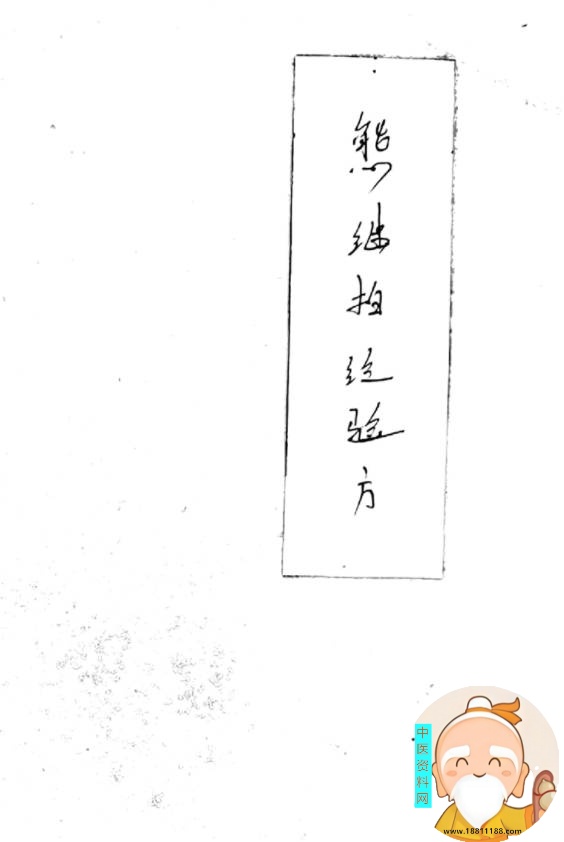 熊继柏经验方
中医资料网
www.18811188.com